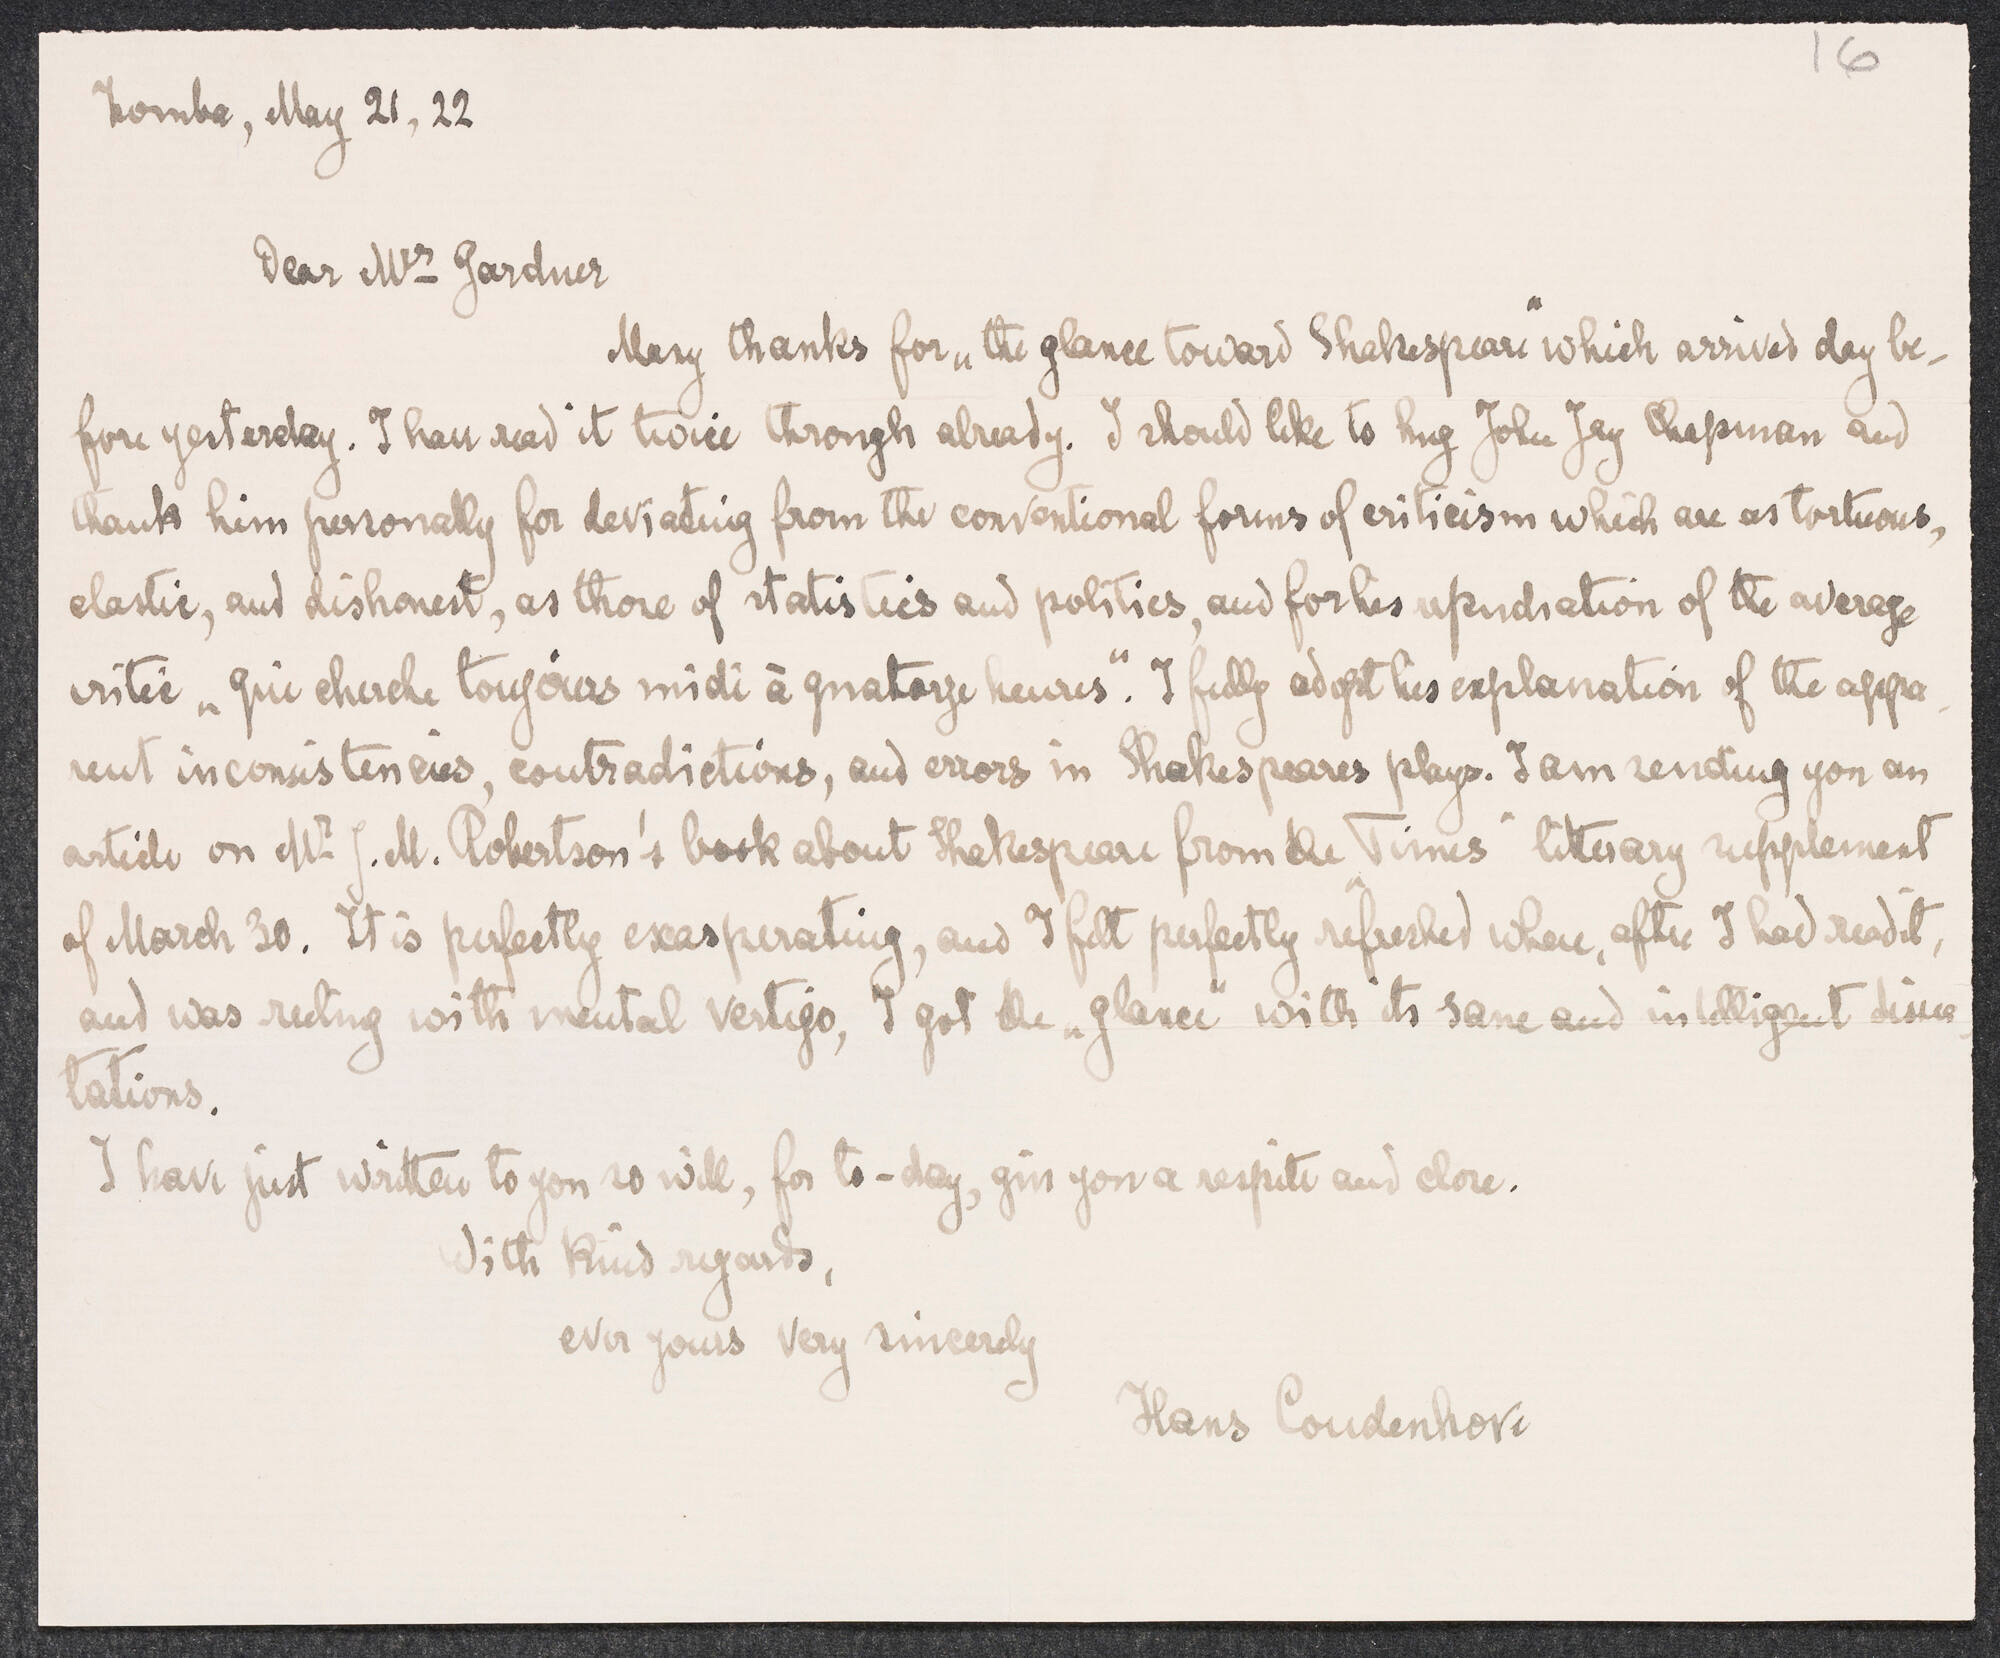 16
Zomba, May 21, 22
Dear Mrs Gardner
Many thanks for „the glance toward Shakespeare“ which arrived day be-
fore yesterday. I have read it twice through already. I should like to hug John Jay Chapman and
thank him personally for deviating from the conventional forms of criticism which are as tortuous,
elastic, and dishonest, as those of statistics and politics, and for his repudiation of the average
critic „qui cherche toujours midi à quatorze heures“. I fully adopt his explanation of the appa-
rent inconsistencies, contradictions, and errors in Shakespeares plays. I am sending you an
article on Mr J. M. Robertson's book about Shakespeare from the "Times" literary supplement
of March 30. It is perfectly exasperating, and I felt perfectly refreshed when, after I had read it,
and was reeling with mental vertigo, I got the „glance“ with its sane and intelligent disser-
tations.
I have just written to you so will, for to-day, give you a respite and close.
With kind regards,
ever yours very sincerely
Hans Coudenhove